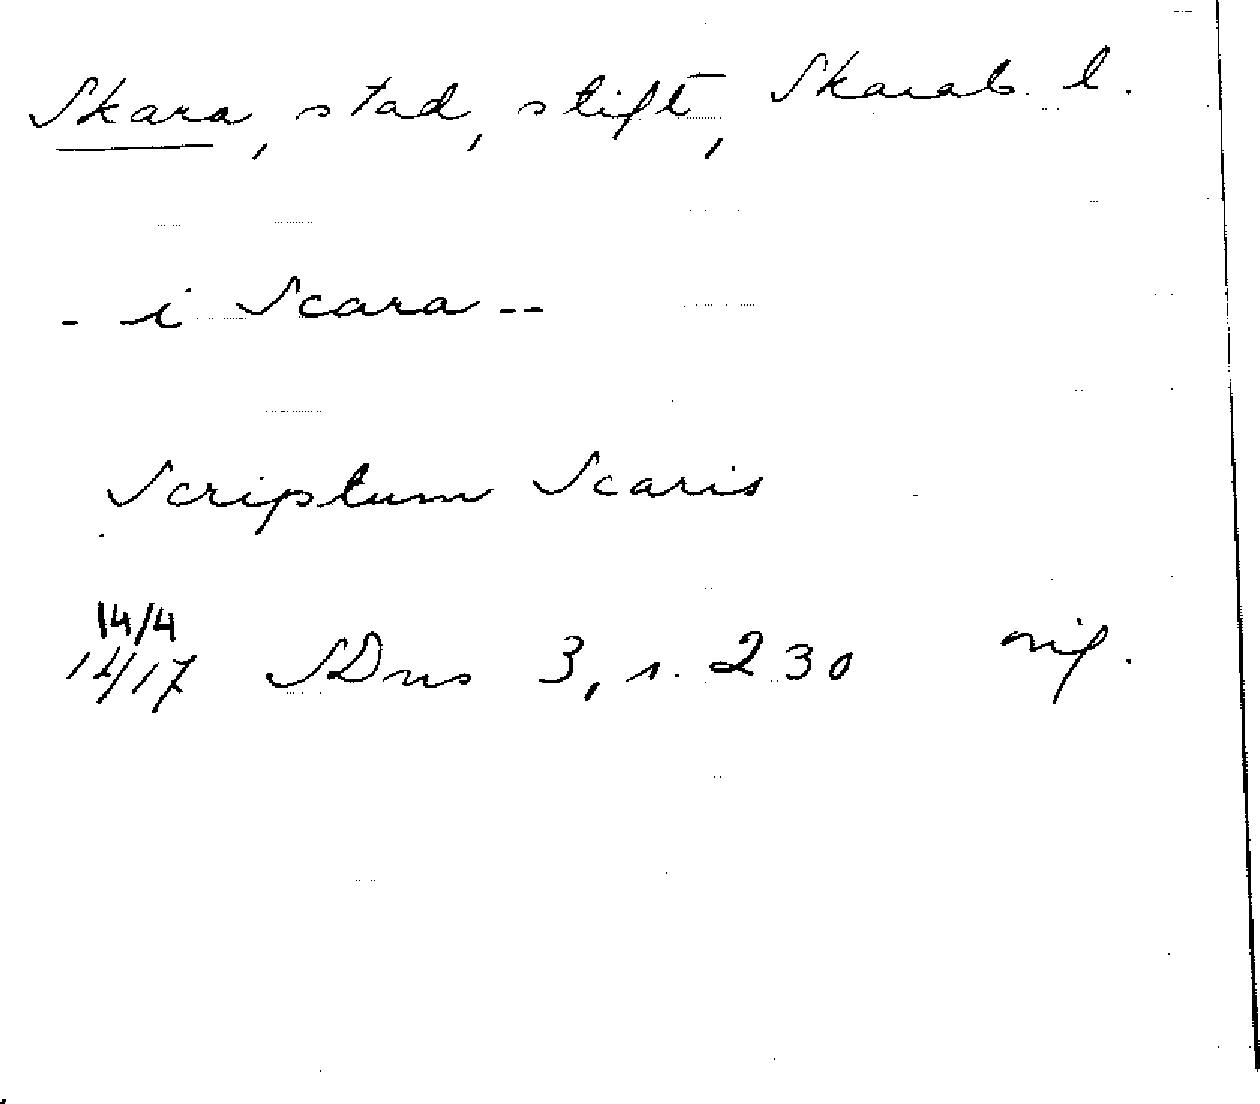 Skara, stad, stift, Skarab. l.
- i Scara --
Scriptum Scaris
14/4
1417 SDns 3, s. 230 nif.